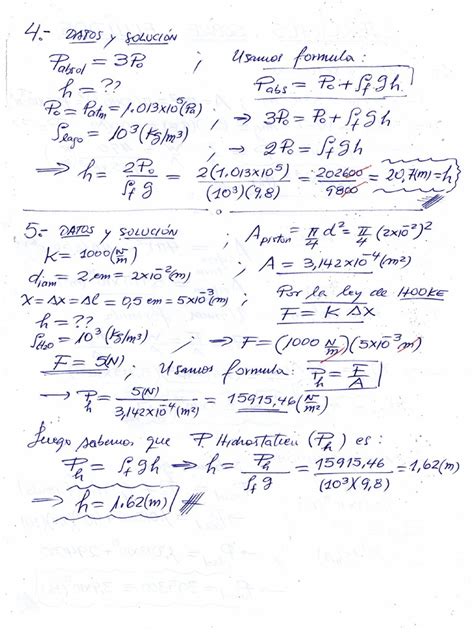 4.- DATOS y SOLUCIÓN
Pabsol = 3P₀ ; Usamos formula:
h = ?? Pabs = P₀ + ρf g h
P₀ = Patm = 1,013x10⁵(Pa) ; → 3P₀ = P₀ + ρf g h
ρlago = 10³(Kg/m³) → 2P₀ = ρf g h
⇒ h = 2P₀/(ρf g) = 2(1,013x10⁵)/((10³)(9,8)) = 202600/9800 = 20,7(m) = h
5.- DATOS y SOLUCIÓN ; Apiston = π/4 d² = π/4 (2x10⁻²)²
K = 1000(N/m)
diam = 2 cm = 2x10⁻²(m) ; A = 3,142x10⁻⁴(m²)
X = ΔX = Δl = 0,5 cm = 5x10⁻³(m) Por la ley de HOOKE
h = ?? F = K ΔX
10³(Kg/m³) ; → F = (1000 N/m)(5x10⁻³ m)
F = 5(N) ; Usamos formula: Ph = F/A
→ Ph = 5(N)/3,142x10⁻⁴(m²) = 15915,46(N/m²)
Luego sabemos que P Hidrostatica (Ph) es:
Ph = ρf g h ⇒ h = Ph/(ρf g) = 15915,46/((10³)(9,8)) = 1,62(m)
⇒ h = 1,62(m)